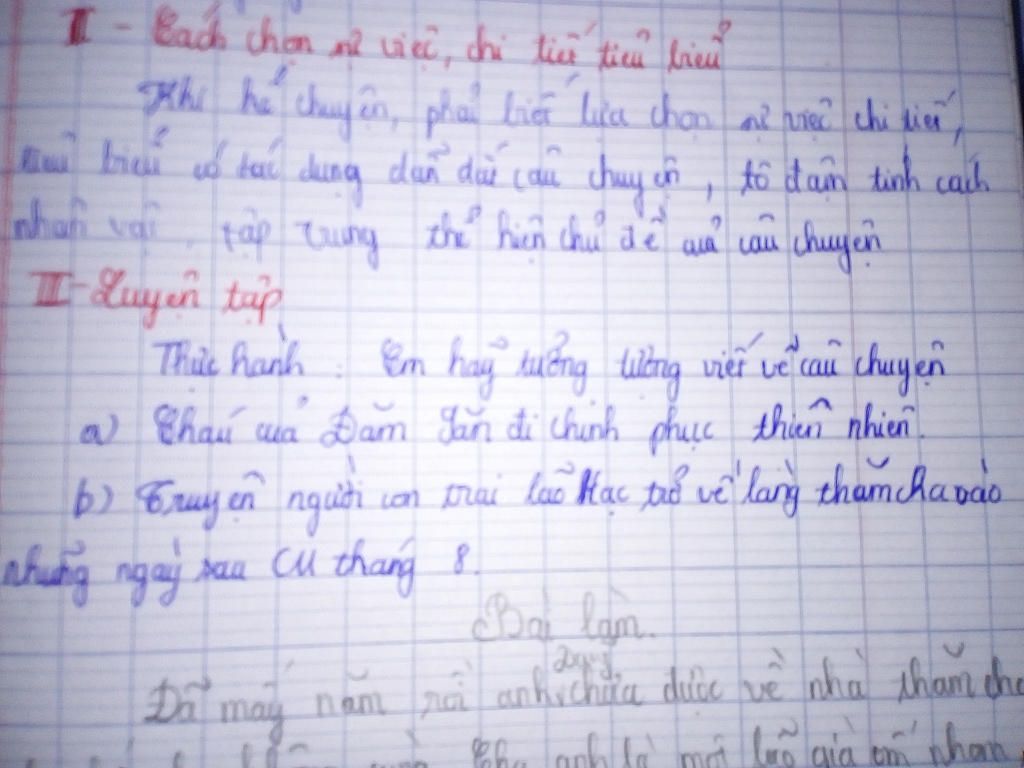 II - Cách chọn sự việc, chi tiết tiêu biểu
Khi kể chuyện, phải biết lựa chọn sự việc chi tiết,
tiêu biểu có tác dụng dẫn dắt câu chuyện, tô đậm tính cách
nhân vật, tập trung thể hiện chủ đề của câu chuyện
III - Luyện tập
Thực hành: Em hãy tưởng tượng viết về câu chuyện
a) Cháu của Đăm Săn đi chinh phục thiên nhiên.
b) Truyện người con trai lão Hạc trở về làng thăm cha vào
những ngày sau CM tháng 8.
Bài làm.
Đã mấy năm rồi anh chưa được về nhà thăm cha
Cha anh là một lão già ốm nhom